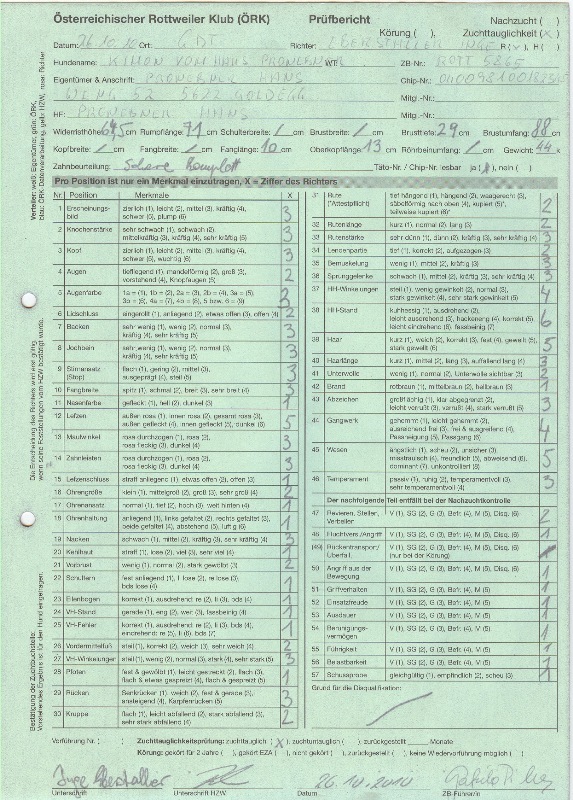 Österreichischer Rottweiler Klub (ÖRK) Prüfbericht Nachzucht ( )
Körung ( ), Zuchttauglichkeit (X)
Datum: 26.10.10 Ort: GDT Richter: EBERSTALLER INGE R (v), H ( )
Hundename: KIMON VOM HAUS PRONEBNER WT: ZB-Nr.: ROTT 5865
Eigentümer & Anschrift: PRONEBNER HANS Chip-Nr.:
WENG 52 5622 GOLDEGG Mitgl.-Nr.:
HF: PRONEBNER HANS Mitgl.-Nr.:
Widerristhöhe 64,5 cm Rumpflänge: 71 cm Schulterbreite: / cm Brustbreite: / cm Brusttiefe: 29 cm Brustumfang: 88 cm
Kopfbreite: / cm Fangbreite: / cm Fanglänge: 10 cm Oberkopflänge: 13 cm Röhrbeinumfang: / cm Gewicht: 44 k
Zahnbeurteilung: Schere komplett Täto-Nr. / Chip-Nr. lesbar ja (X), nein ( )
Pro Position ist nur ein Merkmal einzutragen, X = Ziffer des Richters
Nr. Position Merkmale X
1 Erscheinungsbild zierlich (1), leicht (2), mittel (3), kräftig (4), schwer (5), plump (6) 3
2 Knochenstärke sehr schwach (1), schwach (2), mittelkräftig (3), kräftig (4), sehr kräftig (5) 3
3 Kopf zierlich (1), leicht (2), mittel (3), kräftig (4), schwer (5), wuchtig (6) 3
4 Augen tiefliegend (1), mandelförmig (2), groß (3), vorstehend (4), Knopfaugen (5) 2
5 Augenfarbe 1a = (1), 1b = (2), 2a = (3), 2b = (4), 3a = (5) 3b = (6), 4a = (7), 4b = (8), 5 bzw. 6 = (9)
6 Lidschluss eingerollt (1), anliegend (2), etwas offen (3), offen (4) 2
7 Backen sehr wenig (1), wenig (2), normal (3), kräftig (4), sehr kräftig (5) 3
8 Jochbein sehr wenig (1), wenig (2), normal (3), kräftig (4), sehr kräftig (5) 3
9 Stirnansatz (Stop) flach (1), gering (2), mittel (3), ausgeprägt (4), steil (5) 3
10 Fangbreite spitz (1), schmal (2), breit (3), sehr breit (4) 3
11 Nasenfarbe gefleckt (1), hell (2), dunkel (3)
12 Lefzen außen rosa (1), innen rosa (2), gesamt rosa (3), außen gefleckt (4), innen gefleckt (5), dunkel (6) 5
13 Maulwinkel rosa durchzogen (1), rosa (2), rosa fleckig (3), dunkel (4) 3
14 Zahnleisten rosa durchzogen (1), rosa (2), rosa fleckig (3), dunkel (4) 3
15 Lefzenschluss straff anliegend (1), etwas offen (2), offen (3) 1
16 Ohrengröße klein (1), mittelgroß (2), groß (3), sehr groß (4) 2
17 Ohrenansatz normal (1), tief (2), hoch (3), weit hinten (4) 1
18 Ohrenhaltung anliegend (1), links gefaltet (2), rechts gefaltet (3), beide gefaltet (4), abstehend (5), luftig (6) 1
19 Nacken schwach (1), mittel (2), kräftig (3), sehr kräftig (4) 3
20 Kehlhaut straff (1), lose (2), viel (3), sehr viel (4) 1
21 Vorbrust wenig (1), normal (2), stark gewölbt (3) 2
22 Schultern fest anliegend (1), li lose (2), re lose (3), bds lose (4) 1
23 Ellenbogen korrekt (1), ausdrehend: re (2), li (3), bds (4) 1
24 VH-Stand gerade (1), eng (2), weit (3), fassbeinig (4) 1
25 VH-Fehler korrekt (1), ausdrehend: re (2), li (3), bds (4), eindrehend: re (5), li (6), bds (7) 1
26 Vordermittelfuß steil (1), korrekt (2), weich (3), sehr weich (4) 2
27 VH-Winkelungen steil (1), wenig (2), normal (3), stark (4), sehr stark (5) 3
28 Pfoten fest & gewölbt (1), leicht gespreizt (2), flach (3), flach & etwas gespreizt (4), flach & gespreizt (5) 1
29 Rücken Senkrücken (1), weich (2), fest & gerade (3), ansteigend (4), Karpfenrücken (5) 3
30 Kruppe flach (1), leicht abfallend (2), stark abfallend (3), sehr stark abfallend (4) 2
31 Rute (*Attestpflicht) tief hängend (1), hängend (2), waagerecht (3), säbelförmig nach oben (4), kupiert (5)*, teilweise kupiert (6)* 2
32 Rutenlänge kurz (1), normal (2), lang (3) 2
33 Rutenstärke sehr dünn (1), dünn (2), kräftig (3), sehr kräftig (4) 3
34 Lendenpartie tief (1), korrekt (2), aufgezogen (3) 2
35 Bemuskelung wenig (1), mittel (2), kräftig (3) 3
36 Sprunggelenke schwach (1), mittel (2), kräftig (3), sehr kräftig (4) 3
37 HH-Winkelungen steil (1), wenig gewinkelt (2), normal (3), stark gewinkelt (4), sehr stark gewinkelt (5) 4
38 HH-Stand kuhhessig (1), ausdrehend (2), leicht ausdrehend (3), hackeneng (4), korrekt (5) leicht eindrehend (6), fassbeinig (7) 6
39 Haar kurz (1), weich (2), korrekt (3), fest (4), gewellt (5), stark gewellt (6) 5
40 Haarlänge kurz (1), mittel (2), lang (3), auffallend lang (4)
41 Unterwolle wenig (1), normal (2), Unterwolle sichtbar (3) 2
42 Brand rotbraun (1), mittelbraun (2), hellbraun (3) 1
43 Abzeichen großflähig (1), klar abgegrenzt (2), leicht verrußt (3), verrußt (4), stark verrußt (5) 3
44 Gangwerk gehemmt (1), leicht gehemmt (2), ausreichend frei (3), frei & ausgreifend (4), Passneigung (5), Passgang (6) 4
45 Wesen ängstlich (1), scheu (2), unsicher (3) misstrauisch (4), freundlich (5), abweisend (6), dominant (7), unkontrolliert (8) 5
46 Temperament passiv (1), ruhig (2), temperamentvoll (3), sehr temperamentvoll (4) 3
Der nachfolgende Teil entfällt bei der Nachzuchtkontrolle
47 Revieren, Stellen, Verbellen V (1), SG (2), G (3), Befr. (4), M (5), Disq. (6) 2
48 Fluchtvers./Angriff V (1), SG (2), G (3), Befr. (4), M (5), Disq. (6) 1
(49) Rückentransport/Überfall (nur bei der Körung) V (1), SG (2), G (3), Befr. (4), M (5), Disq. (6)
50 Angriff aus der Bewegung V (1), SG (2), G (3), Befr. (4), M (5), Disq. (6) 1
51 Griffverhalten V (1), SG (2), G (3), Befr. (4), M (5) 1
52 Einsatzfreude V (1), SG (2), G (3), Befr. (4), M (5) 1
53 Ausdauer V (1), SG (2), G (3), Befr. (4), M (5) 1
54 Beruhigungsvermögen V (1), SG (2), G (3), Befr. (4), M (5) 1
55 Führigkeit V (1), SG (2), G (3), Befr. (4), M (5) 1
56 Belastbarkeit V (1), SG (2), G (3), Befr. (4), M (5) 1
57 Schussprobe gleichgültig (1), empfindlich (2), scheu (3) 1
Grund für die Disqualifikation:
Vorführung Nr. ( ) Zuchttauglichkeitsprüfung: zuchttauglich (X), zuchtuntauglich ( ), zurückgestellt Monate
Körung: gekört für 2 Jahre ( ), gekört EZA ( ), nicht gekört ( ), zurückgestellt ( ), keine Wiedervorführung möglich ( )
Inge Eberstaller 26.10.2010
Unterschrift Unterschrift HZW Datum ZB-Führer/in
Verteiler: weiß: Eigentümer, grün: ÖRK,
Die Entscheidung des Richters wird erst gültig,
wenn seine Feststellungen vom HZW bestätigt wurde.
Bestätigung der Zuchtbuchstelle:
Vorstehendes Ergebnis ist für den Hund eingetragen.